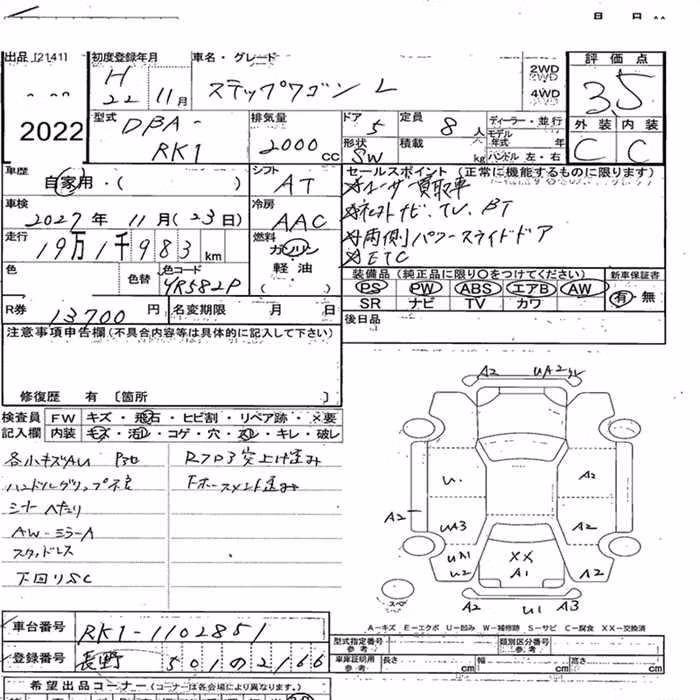 出品 [2141] 初度登録年月 車名・グレード 評価点
H 22年 11月 ステップワゴン L 2WD 4WD 35
2022
型式 DBA- RK1
排気量 2000 cc
ドア 5 定員 8人
形状 SW 積載 kg
ディーラー・並行
モデル年式 年
ハンドル 左・右
外装 C 内装 C
車歴 自家用・( )
シフト AT
セールスポイント(正常に機能するものに限ります)
車検 2027年 11月(23日)
冷房 AAC
☆ユーザー買取車
☆社外ナビ、TV、BT
☆両側パワースライドドア
☆ETC
走行 19万1千983km
燃料 ガソリン 軽・油 ( )
色 色替 色コード YR582P
装備品(純正品に限り○をつけてください) 新車保証書
PS PW ABS エアB AW 有・無
SR ナビ TV カワ
R券 13700円 名変期限 月 日
後日品
注意事項申告欄(不具合内容等は具体的に記入して下さい)
修復歴 有 〔箇所 〕
検査員 FW キズ・飛石・ヒビ割・リペア跡・×要
記入欄 内装 キズ・汚レ・コゲ・穴・スレ・キレ・破レ
各小キズAU
シートヘタリ
AW-ミラーA
スタッドレス
下回りSC
突上げ歪み
A2 UA2
U A2
A2 UA3 A2
UA1 U2 XX A1 A2
スペア A2 U1 A3
A-キズ E-エクボ U-凹み W-補修跡 S-サビ C-腐食 XX-交換済
車台番号 RK1-1102851
型式指定番号 参考 類別区分番号 参考
登録番号 長野 501 の 2166
車庫証明用 参考 長さ cm 幅 cm 高さ cm
希望出品コーナー(コーナーは各会場により異なります。)